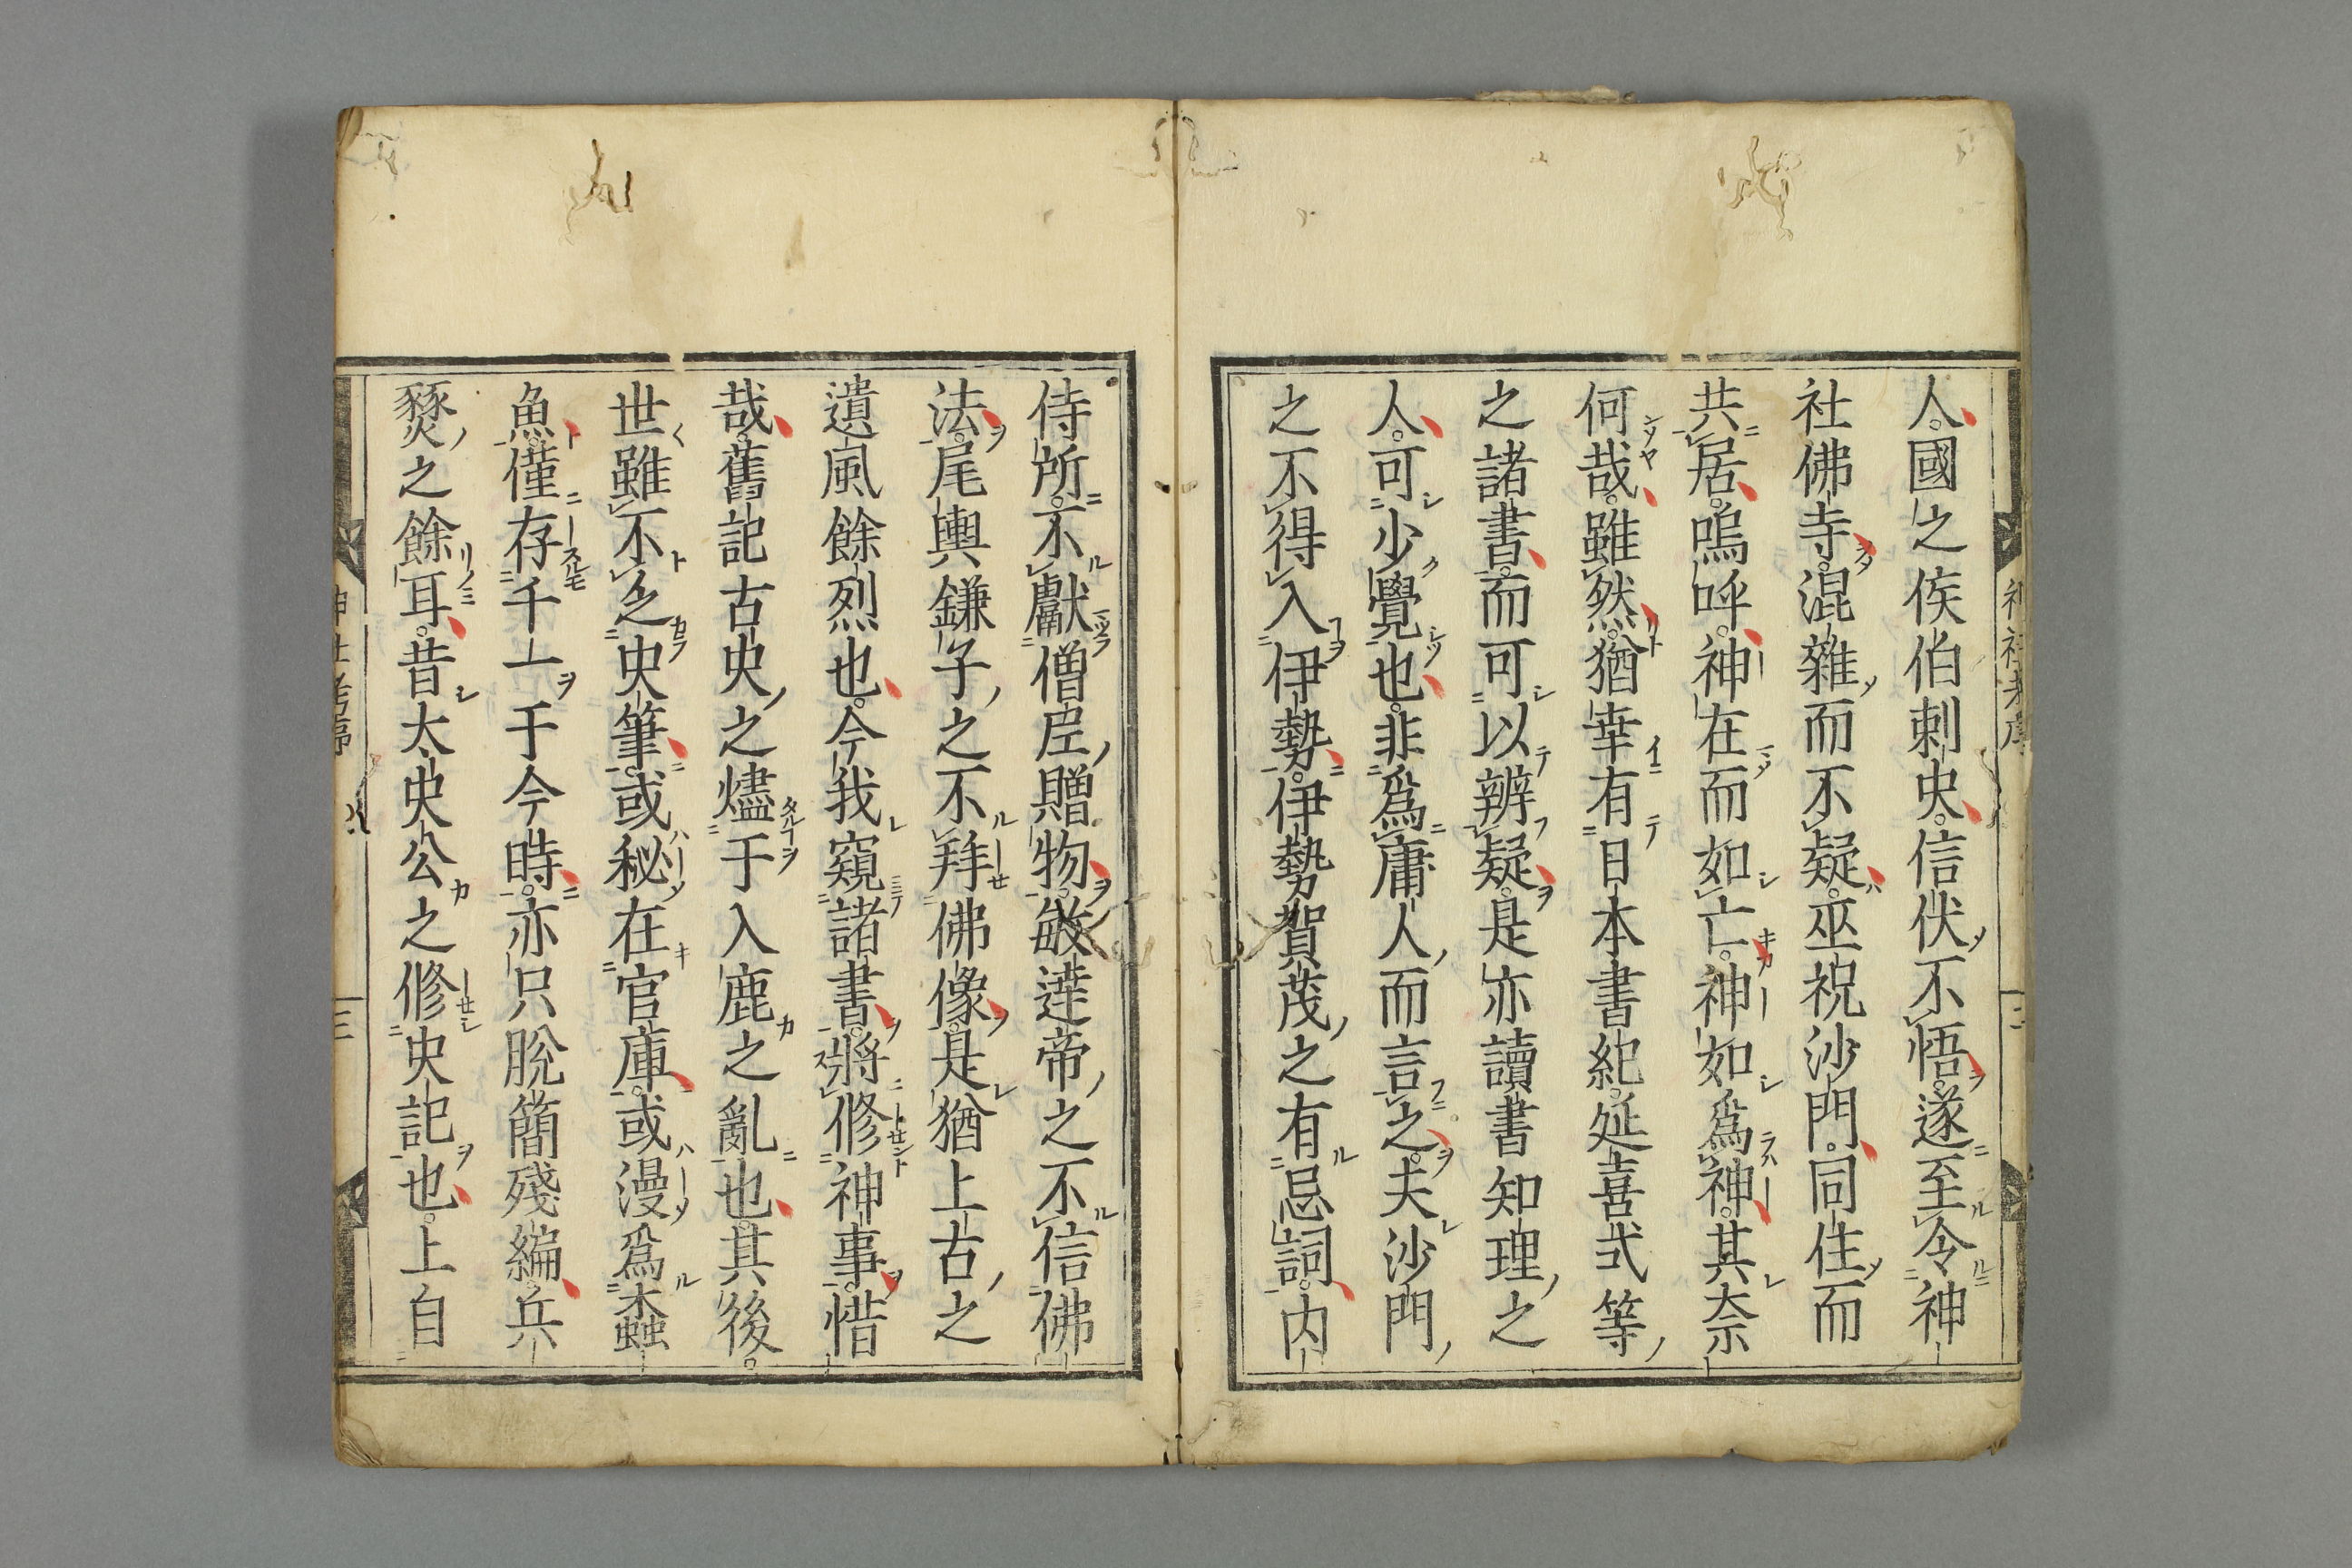 人。國之侯伯刺史。信伏不悟。遂至令神
社佛寺。混雜而不疑。巫祝沙門。同住而
共居。嗚呼。神在而如亡。神如爲神。其奈
何哉。雖然。猶幸有日本書紀。延喜式等
之諸書。而可以辨疑。是亦讀書知理之
人。可少覺也。非爲庸人而言之。夫沙門
之不得入伊勢。伊勢賀茂之有忌詞。内
侍所。不獻僧尼贈物。敏達帝之不信佛
法。尾輿鎌子之不拜佛像。是猶上古之
遺風餘烈也。今我窺諸書。將修神事。惜
哉。舊記古史之燼于入鹿之亂也。其後。
世雖不乏史筆。或秘在官庫。或漫爲蠧
魚。僅存千一于今時。亦只脫簡殘編。兵
燹之餘耳。昔太史公之修史記也。上自
神社考序
三